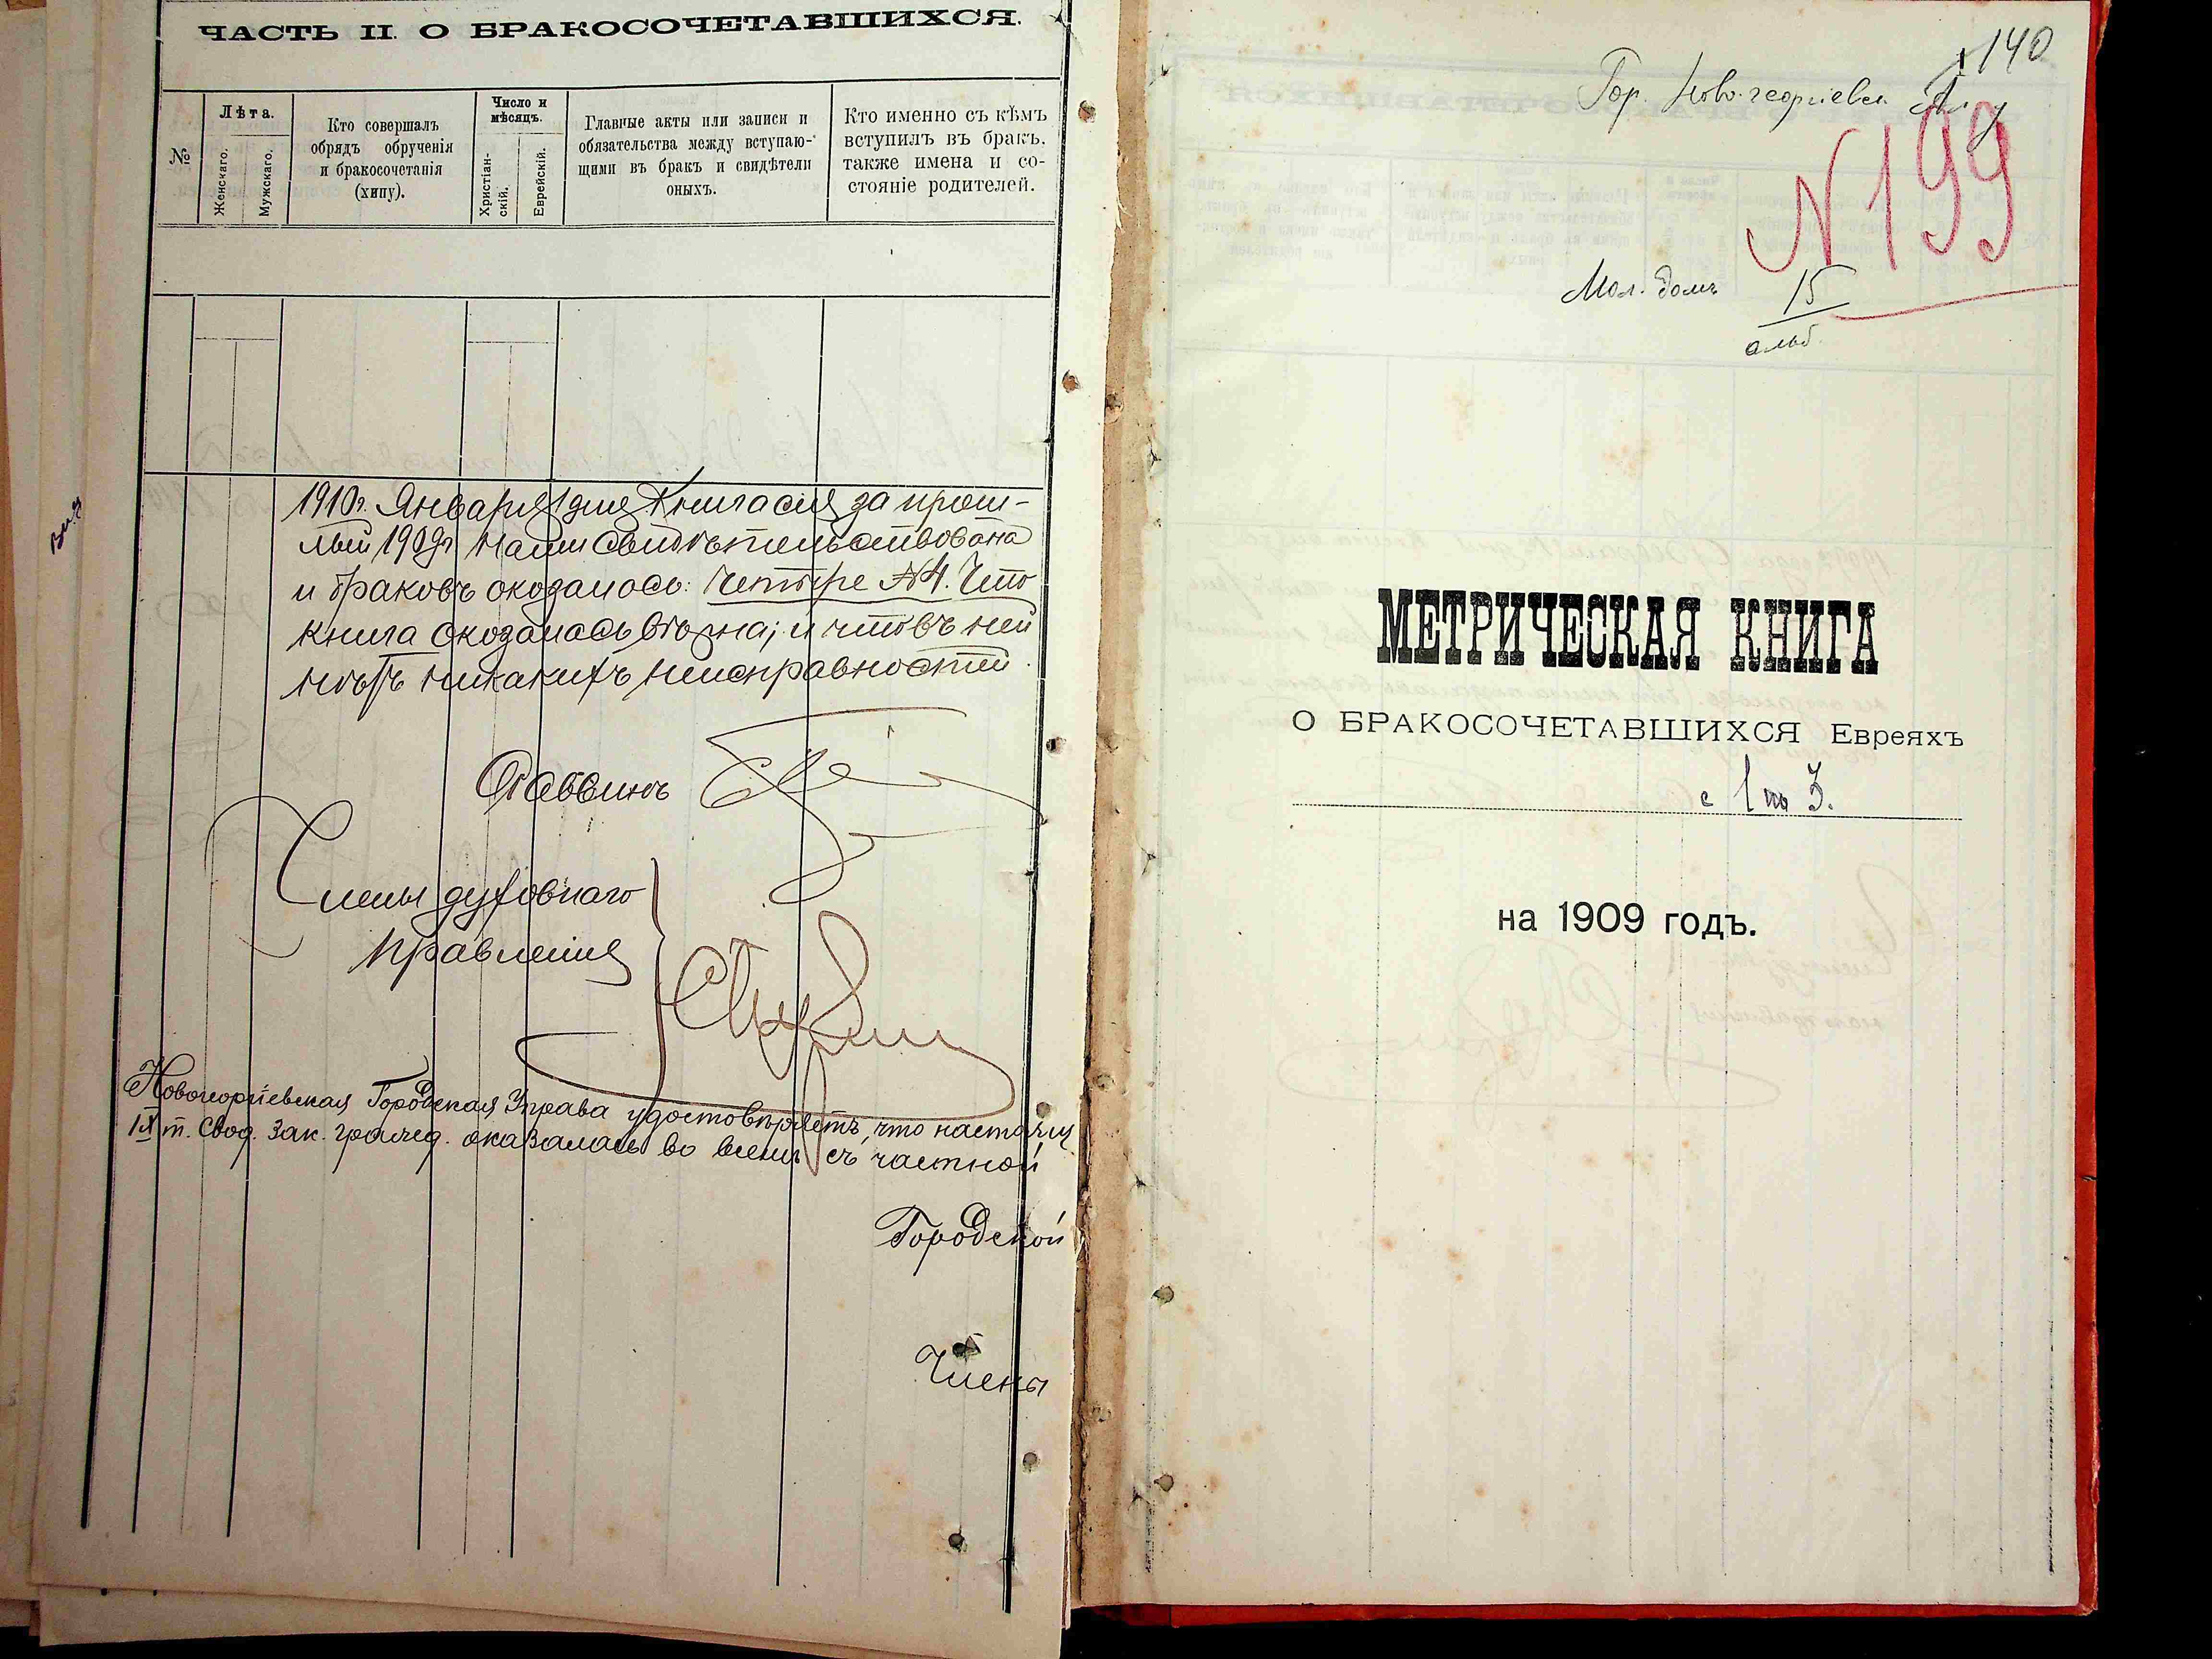 ЧАСТЬ II. О БРАКОСОЧЕТАВШИХСЯ.
№
Лѣта.
Женскаго.
Мужскаго.
Кто совершалъ
обрядъ обрученія
и бракосочетанія
(хипу).
Число и
мѣсяцъ.
Христіан-
скій.
Еврейскій.
Главные акты или записи и
обязательства между вступаю-
щими въ бракъ и свидѣтели
оныхъ.
Кто именно съ кѣмъ
вступилъ въ бракъ,
также имена и со-
стояніе родителей.
1910г. Января 1 дня Книга сія за прош-
лый 1909г нами свидѣтельствована
и браковъ оказалось: четыре №4. Что
книга оказалась вѣрна; и что въ ней
нѣтъ никакихъ неисправностей.
Раввинъ
Члены духовнаго
правленія
Новогеоргіевская Городская Управа удостовѣряетъ, что настоящ
IX т. Свод. Зак. гражд. оказалась во всемъ съ частной
Городской
Члены
140
Гор. Ново-георгіевск
N 199
Мол. домъ
15
МЕТРИЧЕСКАЯ КНИГА
О БРАКОСОЧЕТАВШИХСЯ Евреяхъ
с 1 по 3.
на 1909 годъ.